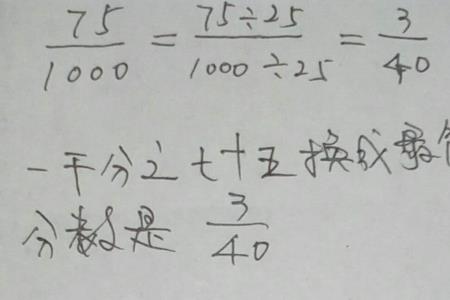 75/1000 = 75÷25/1000÷25 = 3/40
一千分之七十五换成最
分数是 3/40